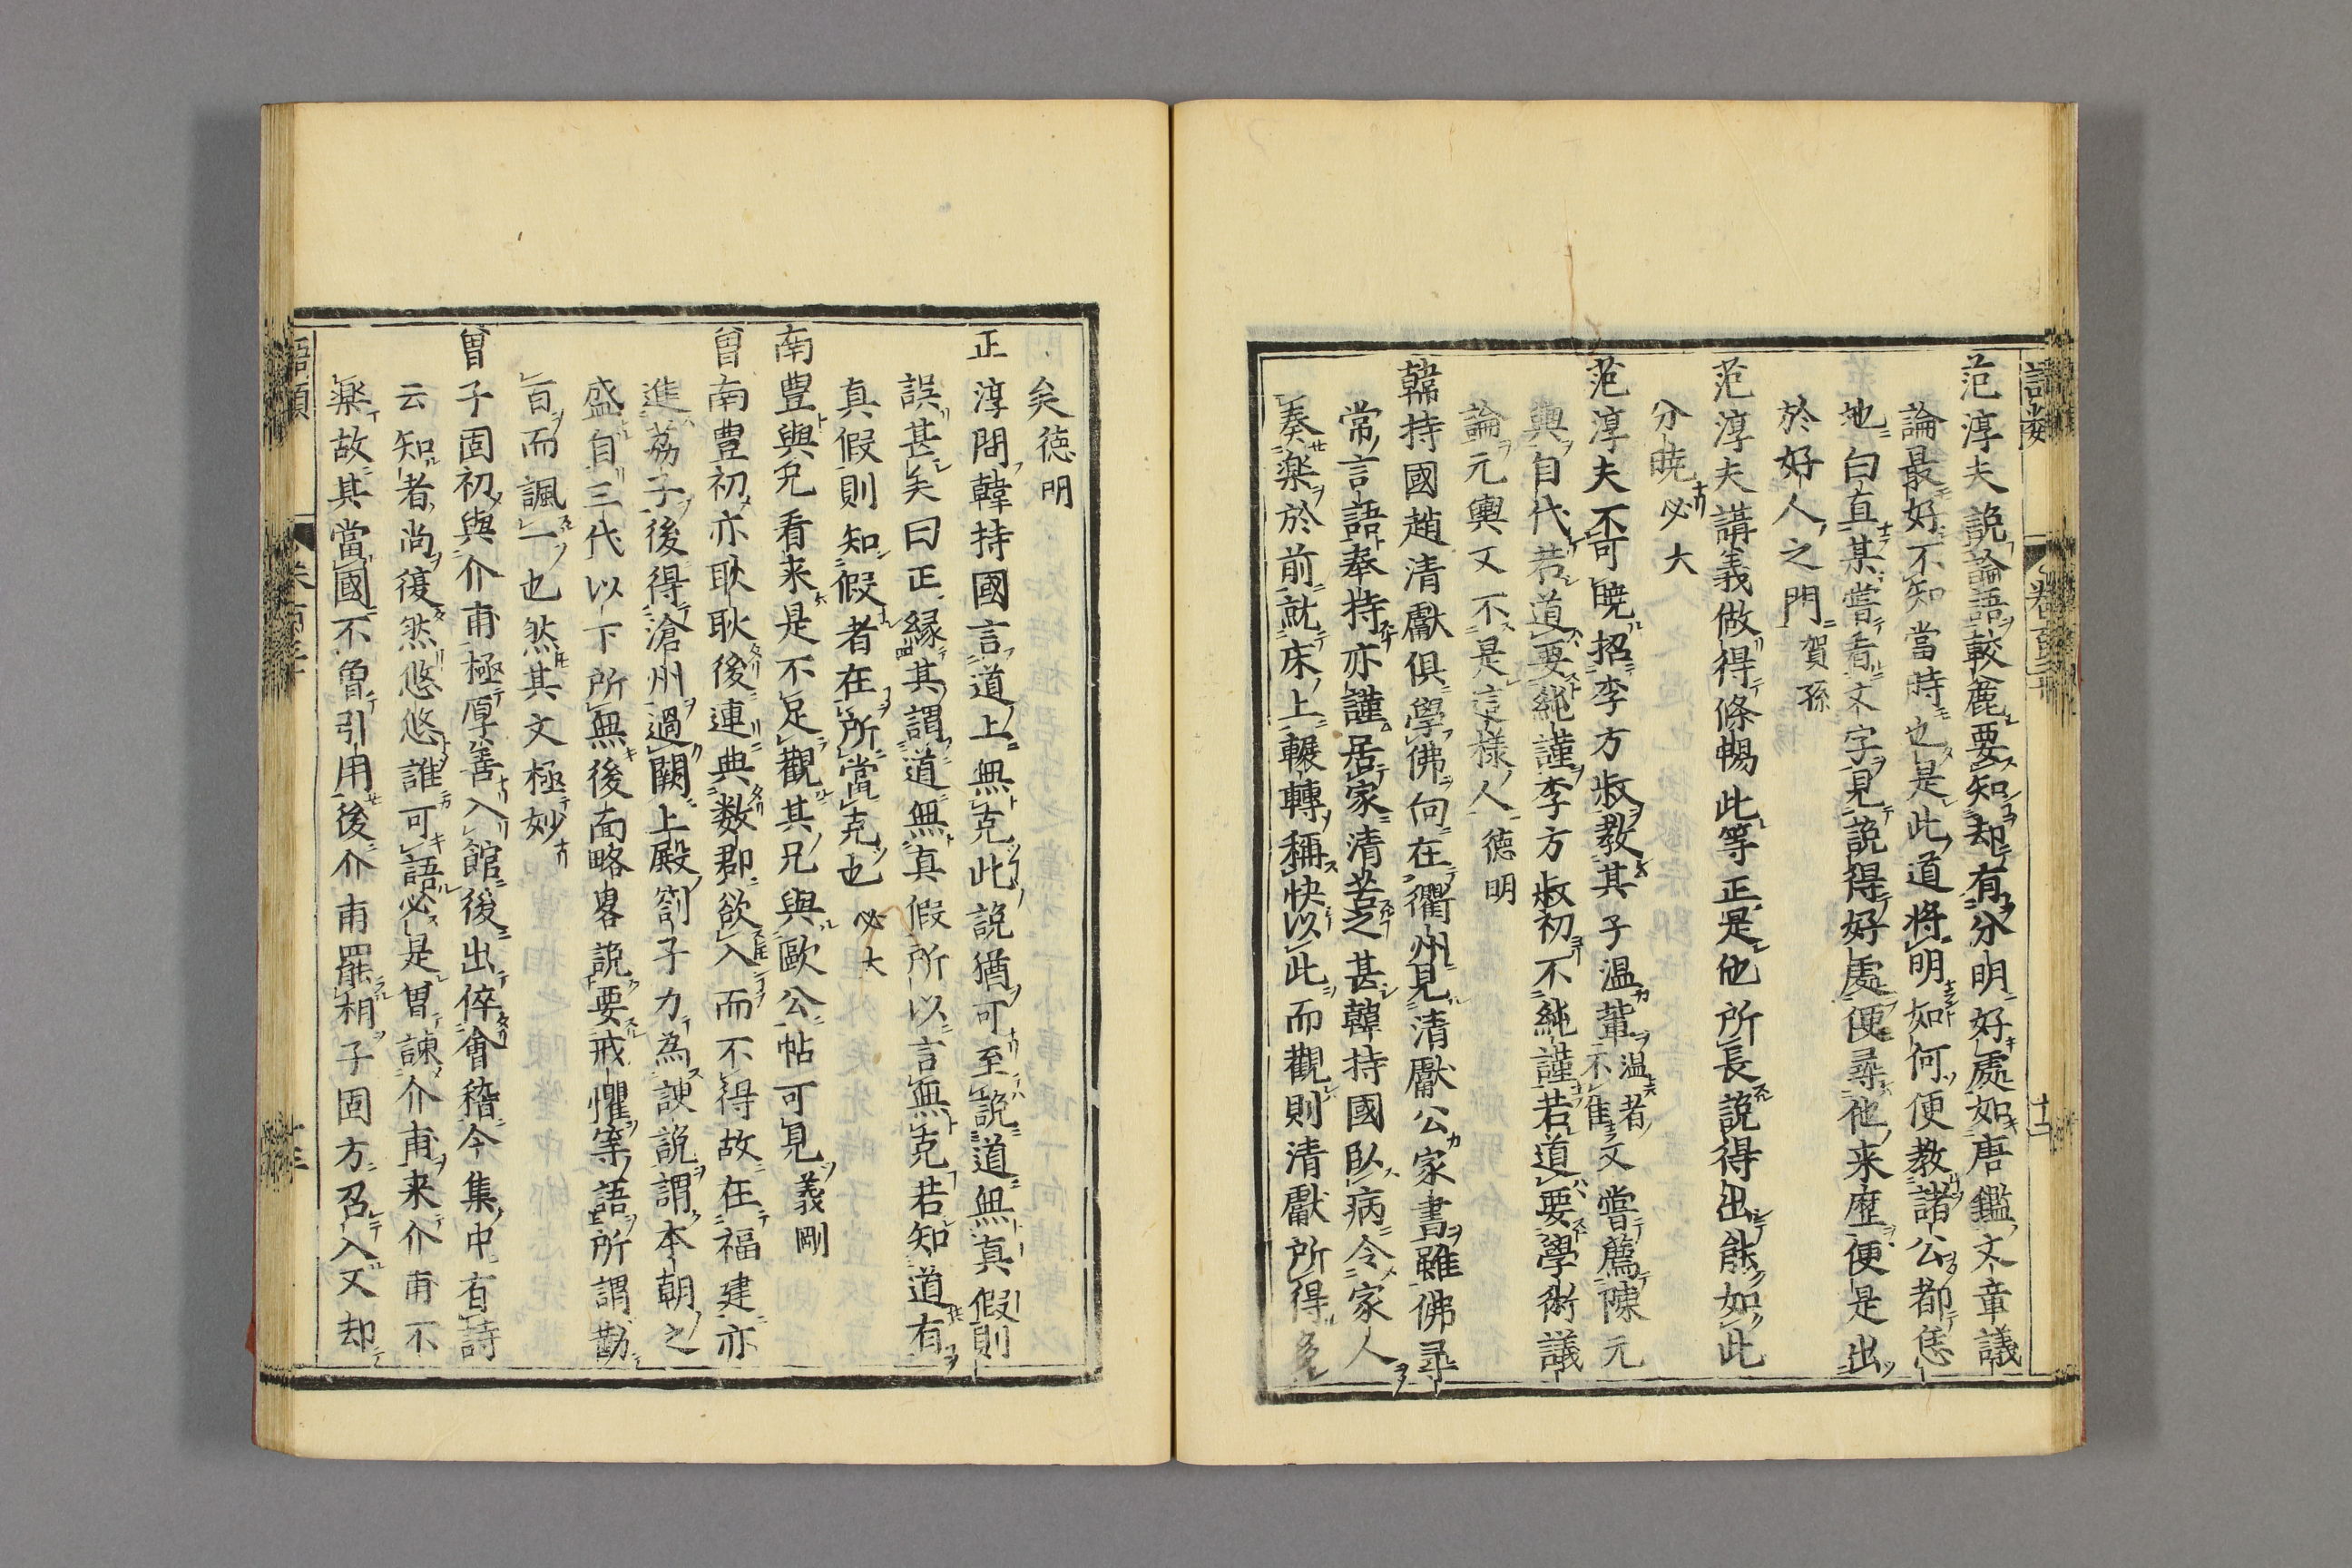 語類　卷百三十　十二
范淳夫說論語較麁要知却有分明好處如唐鑑文章議
論最好不知當時也是此道將明如何便教諸公都恁
地曰直某嘗看文字見說得好處便尋他来歷便是出
於好人之門賀孫
范淳夫講義做得條暢此等正是他所長說得出能如此
分暁必大
范淳夫不可暁招李方叔教其子温輩温者不佳又嘗薦陳元
輿自代若道要純謹李方叔初不純謹若道要學術議
論元輿又不是這様人德明
韓持國趙清獻俱學佛向在衢州見清獻公家書雖佛尋
常言語奉持亦謹居家清苦之甚韓持國臥病令家人
奏楽於前就床上輾轉稱快以此而觀則清獻所得多
矣德明
正淳問韓持國言道上無克此說猶可至說道無真假則
誤甚矣曰正縁其謂道無真假所以言無克若知道有
真假則知假者在所當克也必大
南豊與兄看来是不足觀其兄與歐公帖可見義剛
曾南豊初亦耿耿後連典数郡欲入而不得故在福建亦
進荔子後得滄州過闕上殿劄子力為諛說謂本朝之
盛自三代以下所無後面略畧說要戒懼等語所謂勸
百而諷一也然其文極妙
曾子固初與介甫極厚善入館後出倅會稽今集中有詩
云知者尚復然悠悠誰可語必是曽諫介甫来介甫不
楽故其當國不曽引用後介甫罷相子固方召入又却
語類　卷百三十　十三